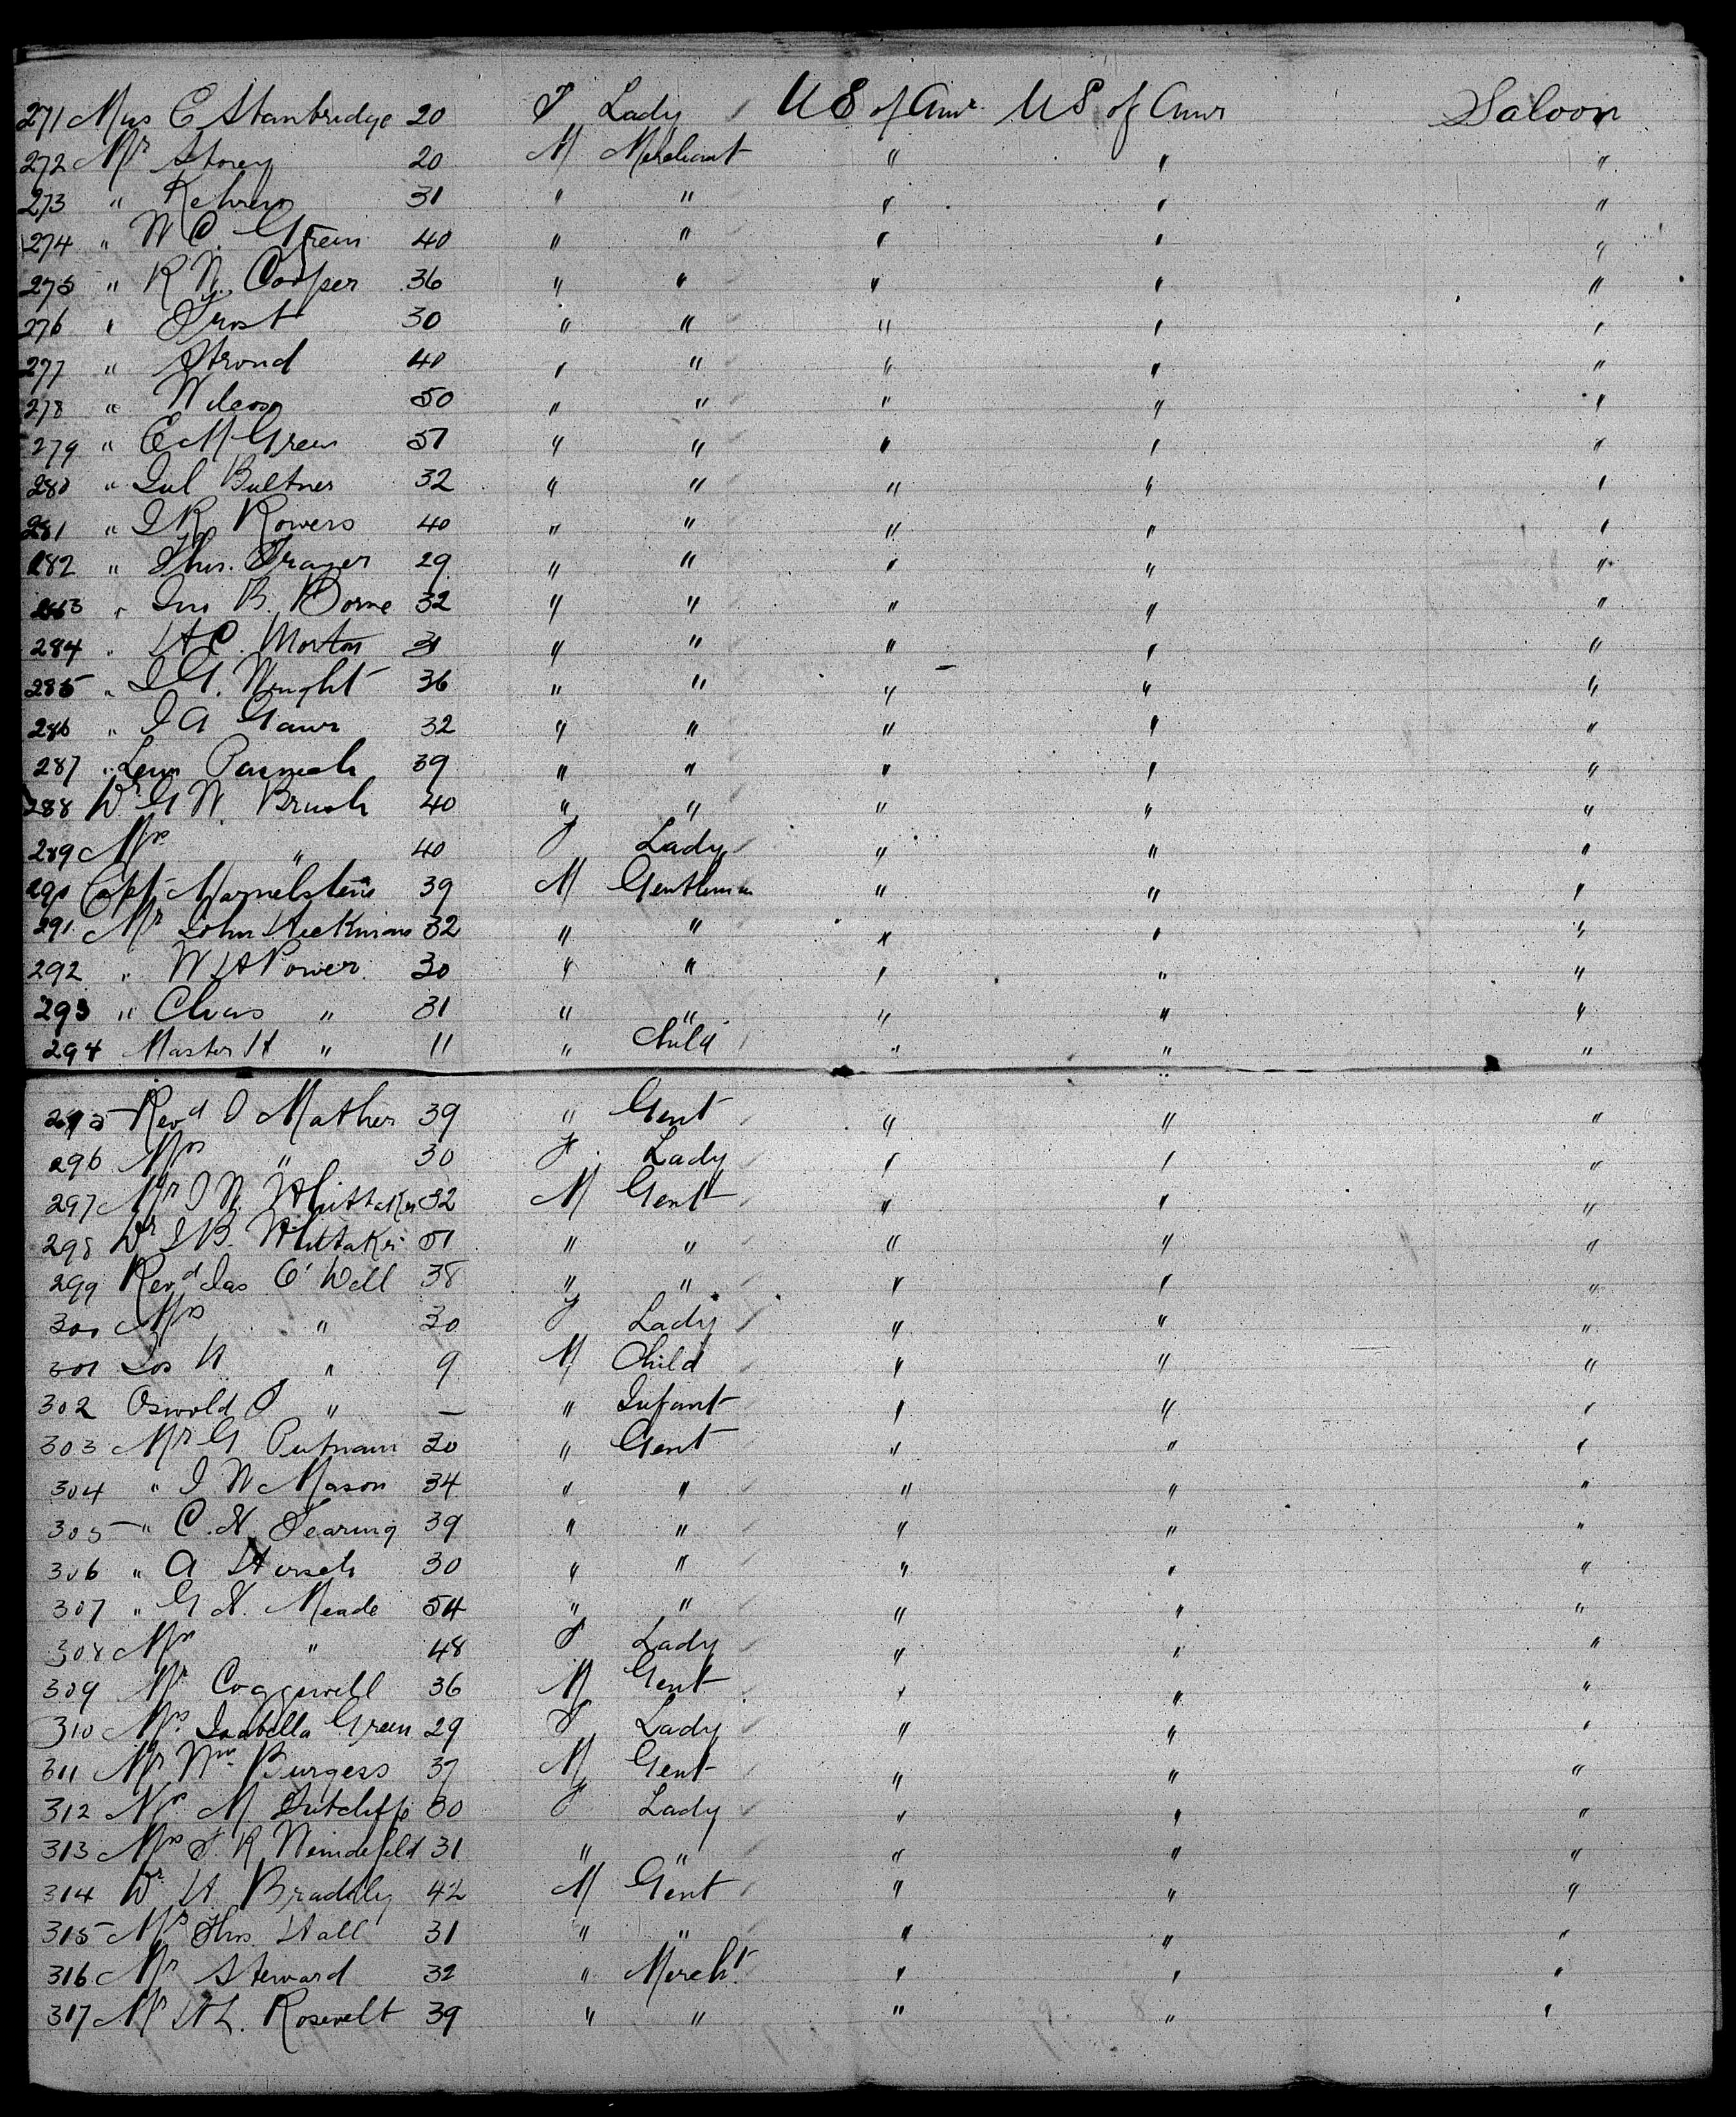 271 Miss E Stanbridge 20 F Lady US of Amr US of Amr Saloon
272 Mr Storey 20 M Merchant " " "
273 " 31 " " " " "
274 " W C. Green 40 " " " " "
275 " R N. Cooper 36 " " " " "
276 " Frost 30 " " " " "
277 " Strond 40 " " " " "
278 " Wilcox 50 " " " " "
279 " E M Green 51 " " " " "
280 " Jul Bultner 32 " " " " "
281 " J R Rowers 40 " " " " "
282 " Thos. Frazer 29 " " " " "
283 " Jno B. Borne 32 " " " " "
284 " H C. Morton 31 " " " " "
285 " J G. Wright 36 " " " " "
286 " J A Gawr 32 " " " " "
287 " 39 " " " " "
288 Dr G W. Brush 40 " " " " "
289 Mrs " 40 F Lady " " "
290 Capt 39 M Gentleman " " "
291 Mr John Hickmans 32 " " " " "
292 " W H Power 30 " " " " "
293 " Chas " 31 " " " " "
294 Master H " 11 " Child " " "
295 Revd J Mather 39 " Gent " " "
296 Mrs " 30 F Lady " " "
297 Mr J N. Whittaker 32 M Gent " " "
298 Dr J B. Whittaker 51 " " " " "
299 Revd Jas O' Dell 38 " " " " "
300 Mrs " 30 F Lady " " "
301 Jos H " 9 M Child " " "
302 Oswold J " — " Infant " " "
303 Mr G Putnam 30 " Gent " " "
304 " J W Mason 34 " " " " "
305 " C. N. Fearing 39 " " " " "
306 " A Hirsch 30 " " " " "
307 " G N. Meade 54 " " " " "
308 Mrs " 48 F Lady " " "
309 Mr Coggswell 36 M Gent " " "
310 Mrs Isabella Green 29 F Lady " " "
311 Mr Wm Burgess 37 M Gent " " "
312 Mrs M Sutcliffe 30 F Lady " " "
313 Mrs F. R 31 " " " " "
314 Dr H Bradely 42 M Gent " " "
315 Mr Thos. Hall 31 " " " " "
316 Mr Steward 32 " Mercht " " "
317 Mr H L. Rosevelt 39 " " " " "